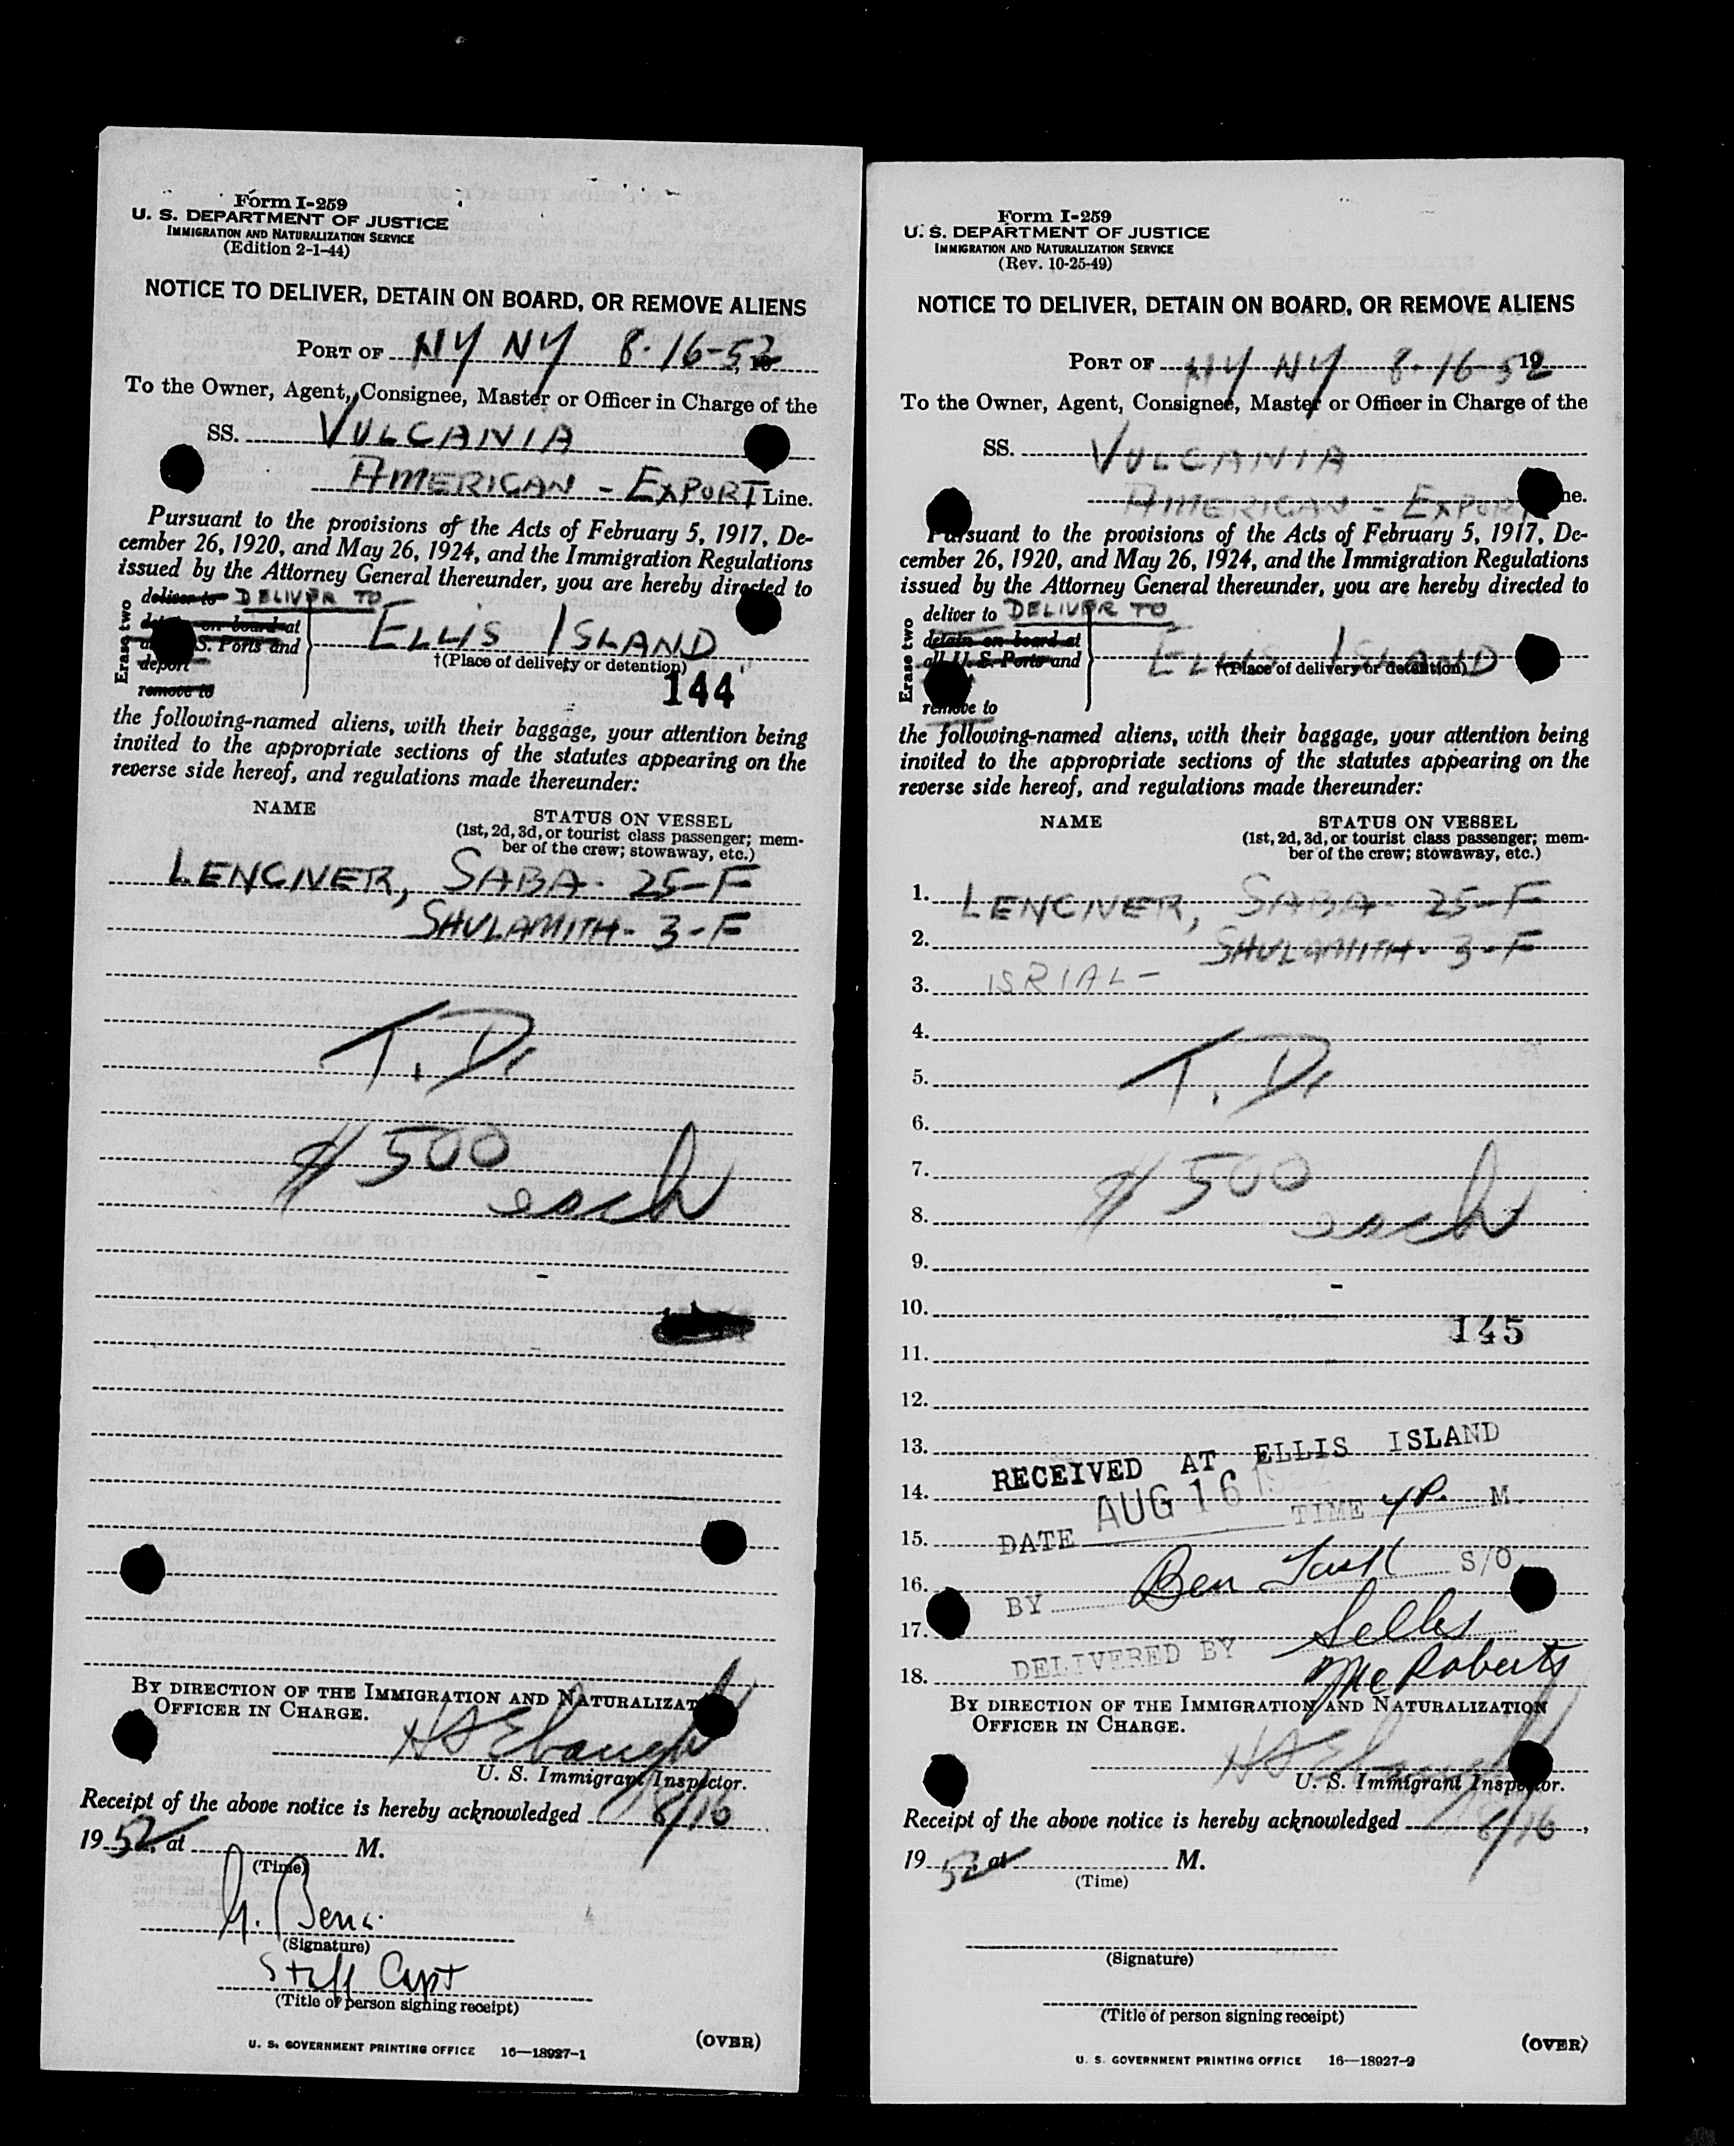 Form I-259
U. S. DEPARTMENT OF JUSTICE
IMMIGRATION AND NATURALIZATION SERVICE
(Edition 2-1-44)
NOTICE TO DELIVER, DETAIN ON BOARD, OR REMOVE ALIENS
PORT OF NY NY 8-16-52, 19
To the Owner, Agent, Consignee, Master or Officer in Charge of the
SS. VULCANIA
AMERICAN - EXPORT Line.
Pursuant to the provisions of the Acts of February 5, 1917, De-
cember 26, 1920, and May 26, 1924, and the Immigration Regulations
issued by the Attorney General thereunder, you are hereby directed to
Erase two
deliver to DELIVER TO
detain on board at
S. Ports and
deport
remove to
ELLIS ISLAND
†(Place of delivery or detention)
144
the following-named aliens, with their baggage, your attention being
invited to the appropriate sections of the statutes appearing on the
reverse side hereof, and regulations made thereunder:
NAME
STATUS ON VESSEL
(1st, 2d, 3d, or tourist class passenger; mem-
ber of the crew; stowaway, etc.)
LENCNER, SABA - 25-F
SHULAMITH - 3-F
T. D.
$500
each
BY DIRECTION OF THE IMMIGRATION AND NATURALIZAT
OFFICER IN CHARGE.
H S Ebaugh
U. S. Immigrant Inspector.
Receipt of the above notice is hereby acknowledged 8/16
1952, at M.
(Time)
G. Benc
(Signature)
Staff Capt
(Title of person signing receipt)
U. S. GOVERNMENT PRINTING OFFICE 16—18927-1
(OVER)
Form I-259
U. S. DEPARTMENT OF JUSTICE
IMMIGRATION AND NATURALIZATION SERVICE
(Rev. 10-25-49)
NOTICE TO DELIVER, DETAIN ON BOARD, OR REMOVE ALIENS
PORT OF NY NY 8-16-52 19
To the Owner, Agent, Consignee, Master or Officer in Charge of the
SS. VULCANIA
AMERICAN - EXPORT ne.
Pursuant to the provisions of the Acts of February 5, 1917, De-
cember 26, 1920, and May 26, 1924, and the Immigration Regulations
issued by the Attorney General thereunder, you are hereby directed to
Erase two
deliver to DELIVER TO
detain on board at
all U. S. Ports and
remove to
ELLIS ISLAND
†(Place of delivery or detention)
the following-named aliens, with their baggage, your attention being
invited to the appropriate sections of the statutes appearing on the
reverse side hereof, and regulations made thereunder:
NAME
STATUS ON VESSEL
(1st, 2d, 3d, or tourist class passenger; mem-
ber of the crew; stowaway, etc.)
1. LENCNER, SABA - 25-F
2. SHULAMITH - 3-F
3. ISRIAL -
4.
5. T. D.
6.
7. $500
8. each
9.
10.
145
11.
12.
13. RECEIVED AT ELLIS ISLAND
14. AUG 16 TIME 4 P. M.
15. DATE
16. BY Ben S/O
17. DELIVERED BY Selles
18. McRoberts
BY DIRECTION OF THE IMMIGRATION AND NATURALIZATION
OFFICER IN CHARGE.
H S Ebaugh
U. S. Immigrant Inspector.
Receipt of the above notice is hereby acknowledged 8/16,
1952, at M.
(Time)
(Signature)
(Title of person signing receipt)
U. S. GOVERNMENT PRINTING OFFICE 16—18927-2
(OVER)